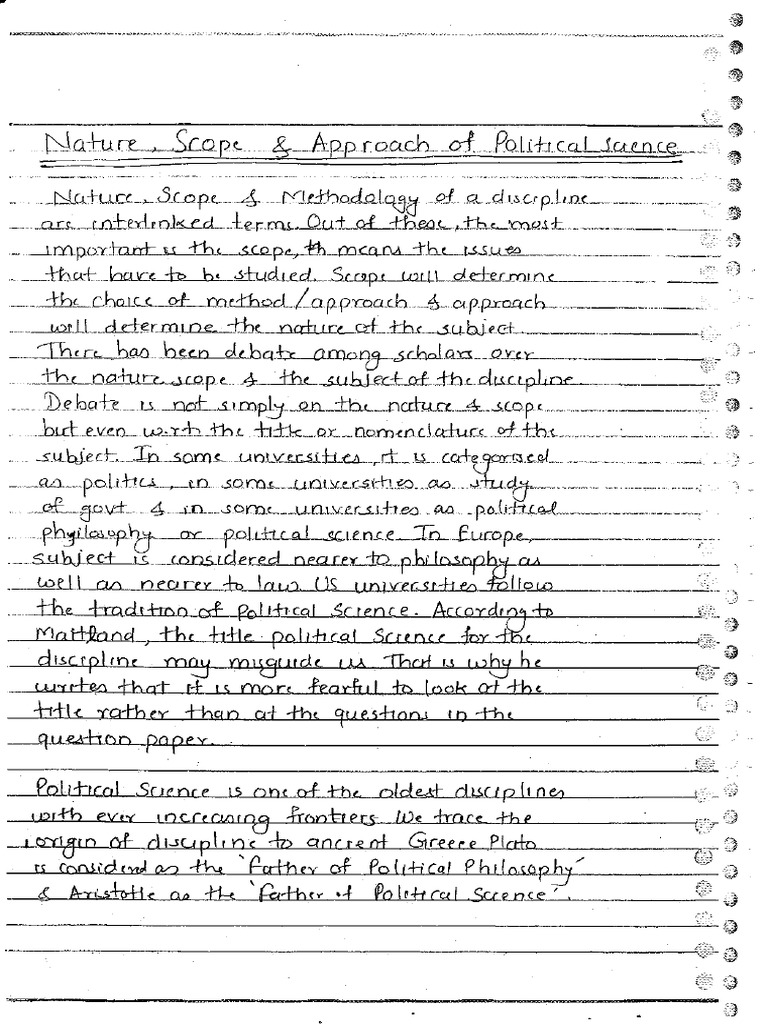 Nature, Scope & Approach of Political Science
Nature, Scope & Methodology of a discipline
are interlinked terms. Out of these, the most
important is the scope, th means the issues
that have to be studied. Scope will determine
the choice of method/approach & approach
will determine the nature of the subject.
There has been debate among scholars over
the nature, scope & the subject of the discipline.
Debate is not simply on the nature & scope
but even with the title or nomenclature of the
subject. In some universities, it is categorised
as politics, in some universities as study
of govt & in some universities as political
phyilosophy or political science. In Europe,
subject is considered nearer to philosophy as
well as nearer to law. US universities follow
the tradition of Political Science. According to
Maitland, the title political Science for the
discipline may misguide us. That is why he
writes that it is more fearful to look at the
title rather than at the questions in the
question paper.
Political Science is one of the oldest disciplines
with ever increasing frontiers. We trace the
origin of discipline to ancient Greece Plato
is considerd as the 'Father of Political Philosophy'
& Aristotle as the 'Father of Political Science'.